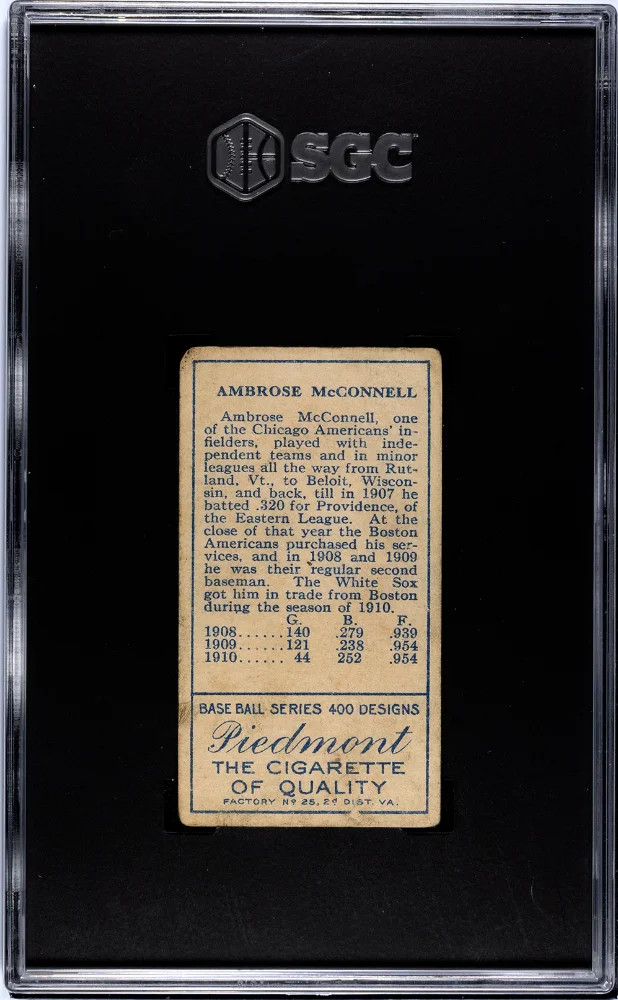 SGC™
AMBROSE McCONNELL
Ambrose McConnell, one
of the Chicago Americans' in-
fielders, played with inde-
pendent teams and in minor
leagues all the way from Rut-
land, Vt., to Beloit, Wiscon-
sin, and back, till in 1907 he
batted .320 for Providence, of
the Eastern League. At the
close of that year the Boston
Americans purchased his ser-
vices, and in 1908 and 1909
he was their regular second
baseman. The White Sox
got him in trade from Boston
during the season of 1910.
G. B. F.
1908......140 .279 .939
1909......121 .238 .954
1910...... 44 252 .954
BASE BALL SERIES 400 DESIGNS
Piedmont
THE CIGARETTE
OF QUALITY
FACTORY Nº 25, 2d DIST. VA.